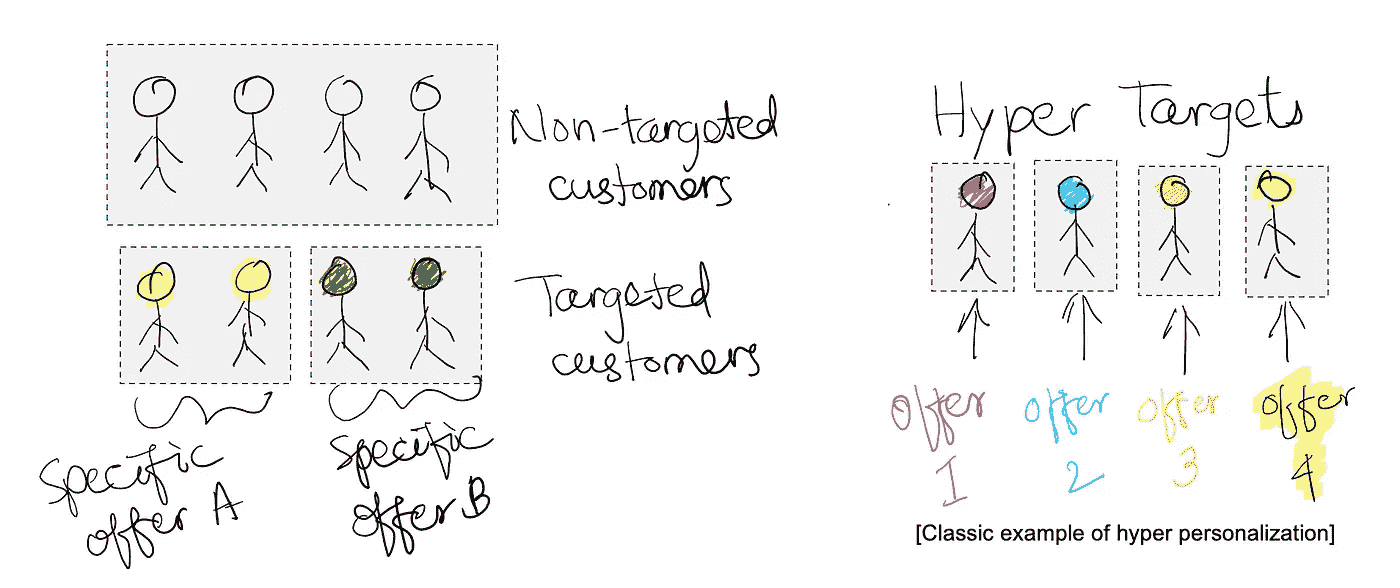 Non-targeted
customers
Targeted
customers
Specific
offer A
Specific
offer B
Hyper Targets
Offer
1
Offer
2
Offer
3
Offer
4
[Classic example of hyper personalization]